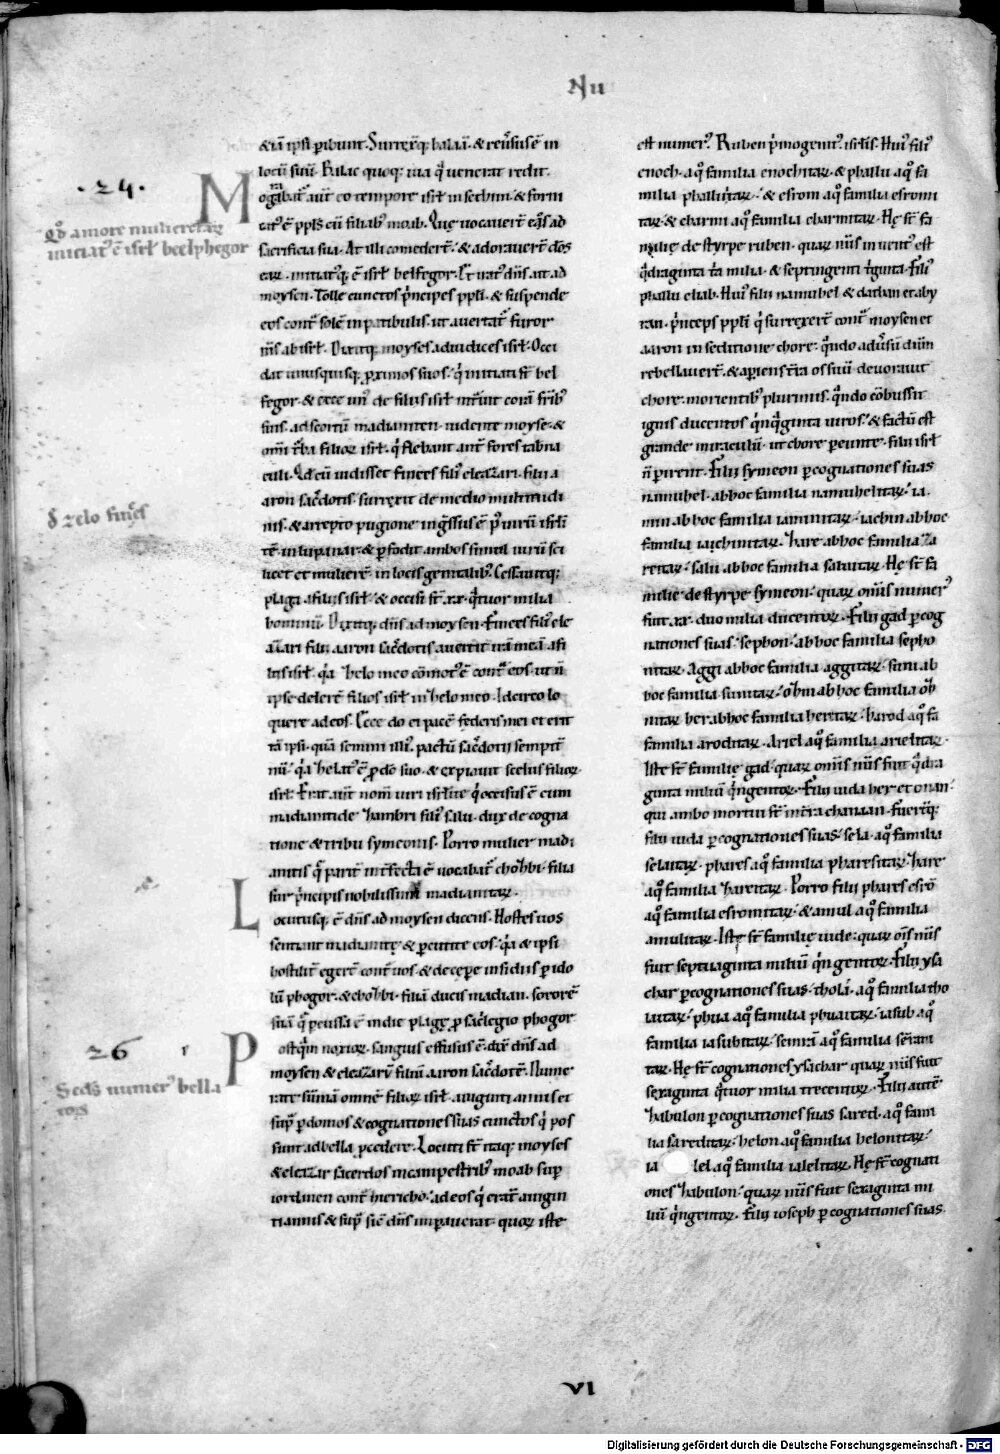 Nu
&iā ipsi ꝑibunt. Surrexitq; balaā. & reuersus ē in
locū suū. Balac quoq; uia q̄ uenerat rediit.
.24.
Morabat̄ aut̄ eo tempore isrl̄ in sethim. & forni
catꝰ ē pplꝰ cū filiabꝰ moab. Que uocauer̄t eos ad
Qd̄ amore mulierū
iniciatꝰ ē isrl̄ beelphegor
sacrificia sua. At illi comeder̄t. & adorauer̄t deos
earꝝ. initiatꝰq; ē isrl̄ belfegor. Et iratꝰ dn̄s ait ad
moysen. Tolle cunctos p̄ncipes ppl̄i. & suspende
eos cont̄ solē in patibulis. ut auertat̄ furor
mꝰs ab isrl̄. Dixitq; moyses ad iudices isrl̄. Occi
dat unusquisq; proximos suos. q̄ initiati st̄ bel
fegor. & ecce unꝰ de filiis isrl̄ int̄uit corā fr̄ibꝰ
suis. ad scortū madianiten. uidente moyse. &
om̄i t̄ba filioꝝ isrl̄. q̄ flebant ant̄ fores tabna
culi. Qd̄ cū uidisset finees filiꝰ eleazari. filii a
aron sac̄dotis. surrexit de medio multitudi
đ zelo finees
nis. & arrepto pugione inḡssus ē p̄ uirū isrl̄i
tē in lupanar. & ꝑfodit ambos simul uirū sci
licet et mulierē in locis genitalibꝰ. Cessauitq;
plaga a filiis isrl̄. & occisi st̄ .xx. q̄tuor milia
hominū. Dixitq; dn̄s ad moysen. Finees filiꝰ ele
azari filii aaron sac̄dotis auertit irā meā a fi
liis isrl̄. q̄a zelo meo cōmotꝰ ē cont̄ eos. ut n̄
ipse delerē filios isrl̄ in zelo meo. Idcirco lo
quere ad eos. Ecce do ei pacē federis mei et erit
tā ipsi. quā semini illiꝰ pactū sac̄dotii sempit̄
nū. q̄a zelatꝰ ē ꝓ dō suo. & expiauit scelus filioꝝ
isrl̄. Erat aut̄ nom̄ uiri isrl̄ite q̄ occisus ē cum
madianitide. zambri filiꝰ salu. dux de cogna
tione & tribu symeonis. Porro mulier madi
anitis q̄ parit̄ int̄fecta ē uocabat̄ chozbi. filia
sur p̄ncipis nobilissimi madianitaꝝ.
Locutusq; ē dn̄s ad moysen dicens. Hostes uos
sentiant madianitę & ꝑcutite eos. q̄a & ipsi
hostilit̄ eger̄t cont̄ uos. & decepe insidiis ꝑ ido
lū phogor. & chozbi. filiā ducis madian. sororē
suā q̄ ꝑcussa ē in die plagę ꝓ sac̄legio phogor
26
Postq̄m noxioꝝ. sanguis effusus ē. dix̄ dn̄s ad
moysen & eleazarū filiū aaron sac̄dotē. Nume
Scd̄s numerꝰ bella
toꝝ
rate sūmā omnē filioꝝ isrl̄. a uiginti annis et
supͣ ꝑ domos & cognationes suas cunctos q̄ pos
sunt ad bella ꝓcedere. Locuti st̄ itaq; moyses
& eleazar sacerdos in campestribꝰ moab supͣ
iordanen cont̄ iericho. ad eos q̄ erāt a uigin
ti annis & supͣ sic̄ dn̄s impauerat. quoꝝ iste
est numerꝰ. Ruben p̄mogenitꝰ isrl̄is. Huiꝰ filiꝰ
enoch. a q̊ familia enochitaꝝ. & phallu a q̊ fa
milia phalluitaꝝ. & esrom a q̊ familia esromi
taꝝ. & charmi a q̊ familia charmitaꝝ. Hę st̄ fa
milię de styrpe ruben. quaꝝ nūs inuentꝰ est
q̄draginta t̄a milia. & septingenti t̄ginta. Filiꝰ
phallu eliab. Huiꝰ filii namuhel & dathan et aby
ran. p̄nceps ppl̄i q̄ surrexer̄t cont̄ moysen et
aaron in seditione chore. q̄ndo aduersū dn̄m
rebellauer̄t. & aperiens t̄ra os suū deuorauit
chore. morientibꝰ plurimis. q̄ndo cōbussit
ignis ducentos q̄nq̄ginta uiros. & factū est
grande miraculū. ut chore ꝑeunte. filii isrl̄
n̄ ꝑirent. Filii symeon ꝑ cognationes suas
namuhel. ab hoc familia namuhelitaꝝ. ia
min ab hoc familia iaminitaꝝ. iachin ab hoc
familia iachinitaꝝ. zare ab hoc familia za
reitaꝝ. salu ab hoc familia saluitaꝝ. Hę st̄ fa
milie de styrpe symeon. quaꝝ omīs numerꝰ
fuit .xx. duo milia ducentoꝝ. Filii gad ꝑ cog
nationes suas. sephon. ab hoc familia sepho
nitaꝝ. Aggi ab hoc familia aggitaꝝ. suni ab
hoc familia sunitaꝝ. ozni ab hoc familia oz
nitaꝝ her ab hoc familia heritaꝝ. harod a q̊ fa
familia aroditaꝝ. Ariel a q̊ familia arielitaꝝ.
Iste st̄ familię gad. quaꝝ omīs nūs fuit q̄dra
ginta miliū q̄ngentoꝝ. Filii iuda her et onan.
qui ambo mortui st̄ in t̄ra chanaan. Fuer̄q;
filii iuda ꝑ cognationes suas. sela. a q̊ familia
selaitaꝝ. phares a q̊ familia pharesitaꝝ. zare
a q̊ familia zareitaꝝ. Porro filii phares esrō
a q̊ familia esromitaꝝ. & amul a q̊ familia
amulitaꝝ. Iste st̄ familię iude. quaꝝ oīs nūs
fuit septuaginta miliū q̄ngentoꝝ. Filii ysa
char ꝑ cognationes suas. thola. a q̊ familia tho
laitaꝝ. phua a q̊ familia phuaitaꝝ. iasub a q̊
familia iasubitaꝝ. semrā a q̊ familia sēram
taꝝ. Hę st̄ cognationes ysachar quaꝝ nūs fuit
sexaginta q̄tuor milia trecentoꝝ. Filii autē
zabulon ꝑ cognationes suas sared. a q̊ fami
lia sareditaꝝ. helon a q̊ familia helonitaꝝ.
ia lel a q̊ familia ialelitaꝝ. Hę st̄ cognati
ones zabulon. quaꝝ nūs fuit sexaginta mi
liū q̄ngentoꝝ. Filii ioseph ꝑ cognationes suas.
VI
Digitalisierung gefördert durch die Deutsche Forschungsgemeinschaft - DFG